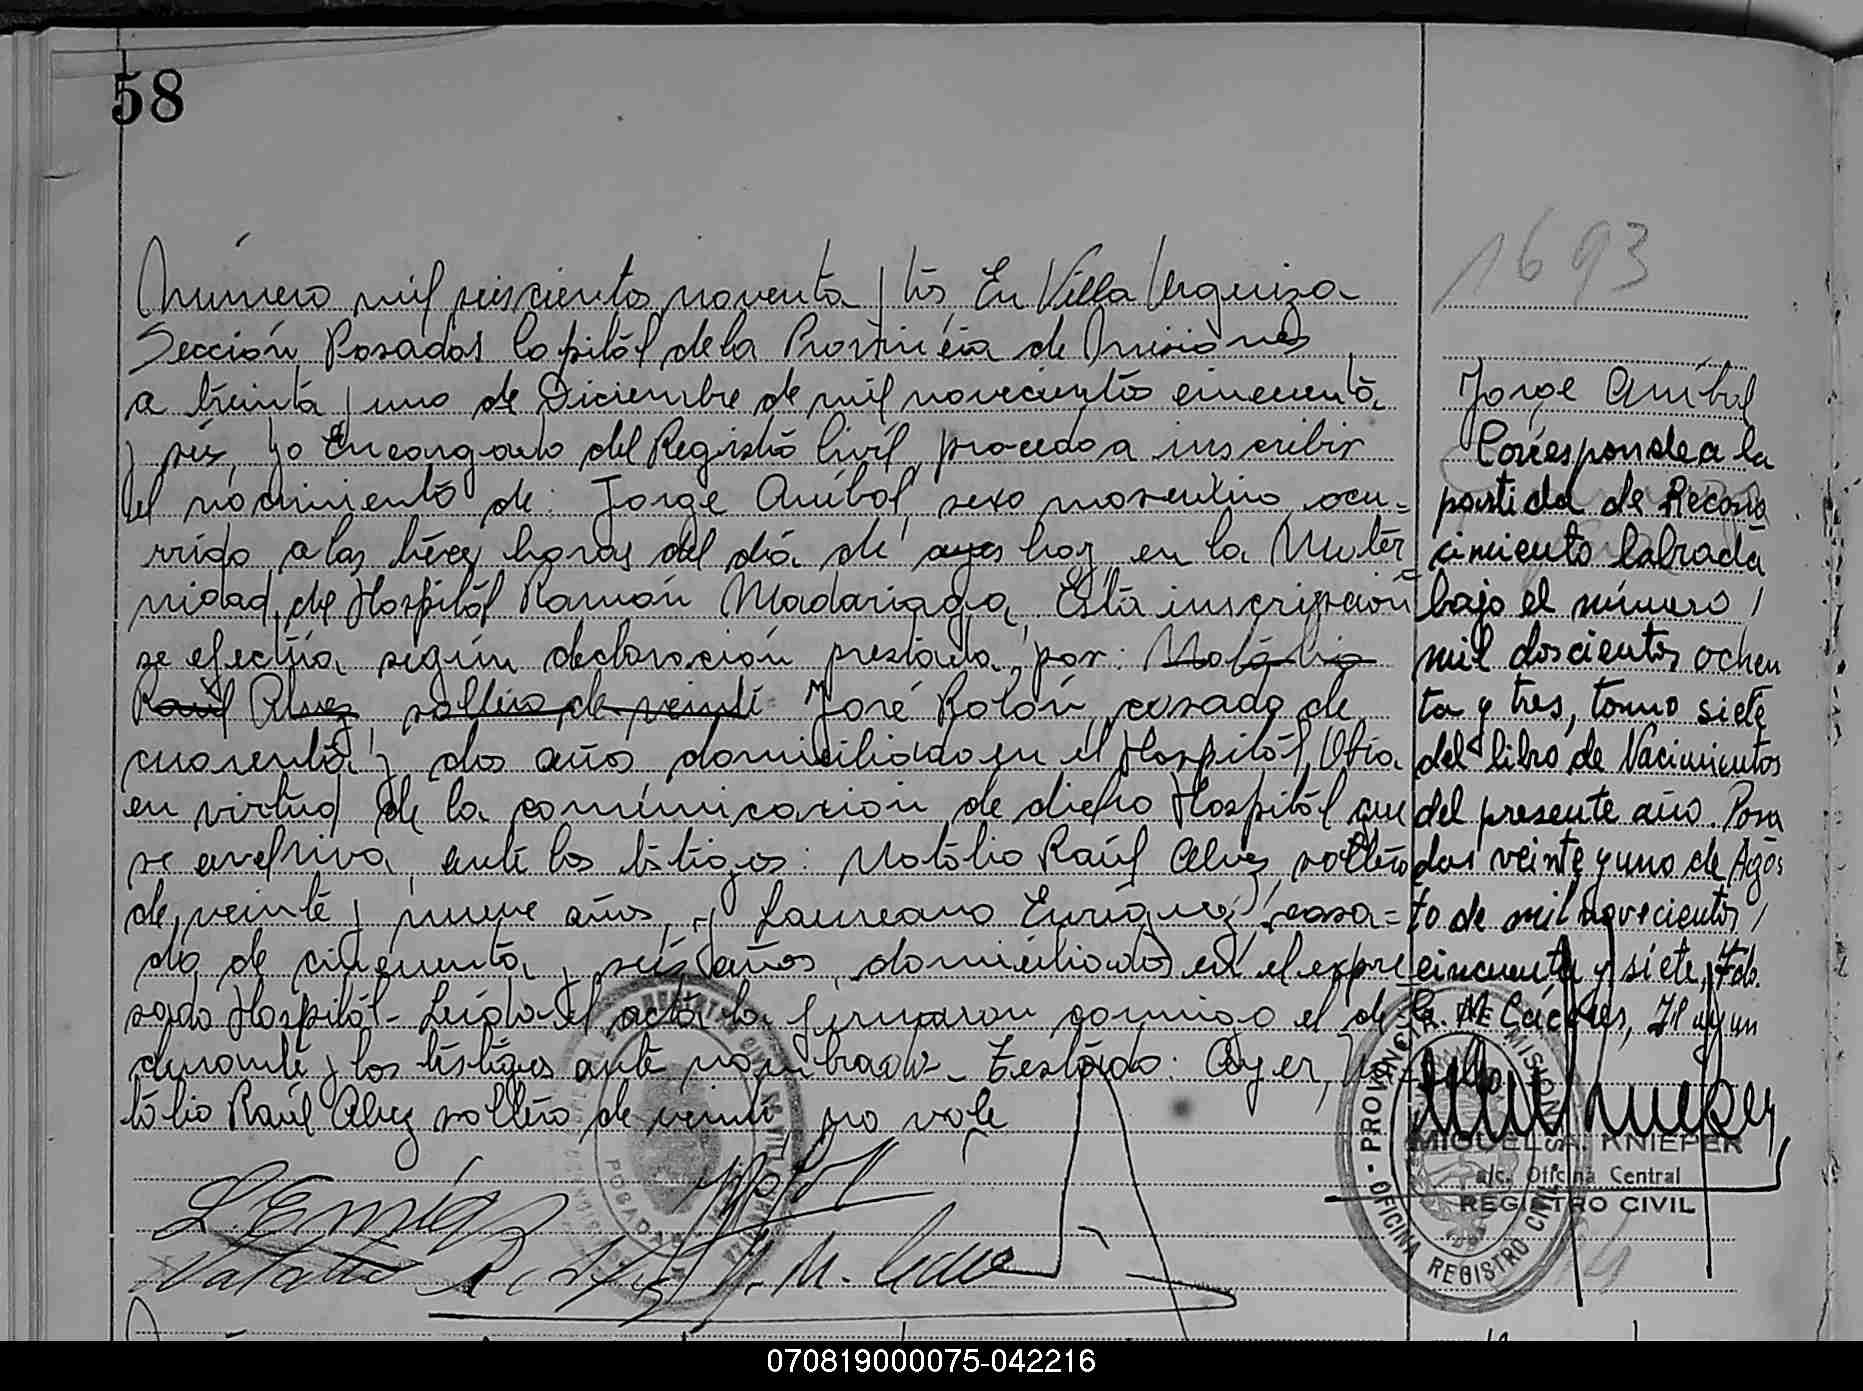 58
1693
Número mil seiscientos noventa y trés En Villa Urquiza
Sección Posadas Capitál de la Provincia de Misiones
a treinta y uno de Diciembre de mil novecientos cincuenta
y seis, yo Encargado del Registro Civíl, procedo a inscribir
el nacimiento de: Jorge Aníbal, sexo masculino, ocu=
rrido a las horas del día de ayer hoy, en la Mater=
nidad, de Hospitál Ramón Madariaga, Esta inscripción
se efectúa según declaración prestada, por: Natálio
Raúl Alvez soltero de veinte José Rolón, casado de
cuarenta y dos años domiciliado en el Hospitál,
en virtud de la comunicación de dicho Hospitál que
se archiva, ante los testigos: Natálio Raúl Alvez, soltero
de, veinte y nueve años, y Laureano Enriquez, casa=
do de cincuenta y seis años, domiciliados en el expre
sado Hospitál- Leída el acta la firmaron conmigo el de
clarante y los testigos ante nombrado- Testado: Ayer, Na
tálio Raúl Alvez soltero de veinte no vale
Jorge Aníbal
Corresponde a la
partida de Recono
cimiento labrada
bajo el número
mil doscientos ochen
ta y tres, tomo siete
del libro de Nacimientos
del presente año. Posa
das veinte y uno de Agos
to de mil novecientos
cincuenta y siete, Fdo.
M. Cáceres,
PROVINCIA DE MISIONES
OFICINA REGISTRO CIVIL
MIGUEL A. KNIEPER
a/c. Oficina Central
REGISTRO CIVIL
070819000075-042216